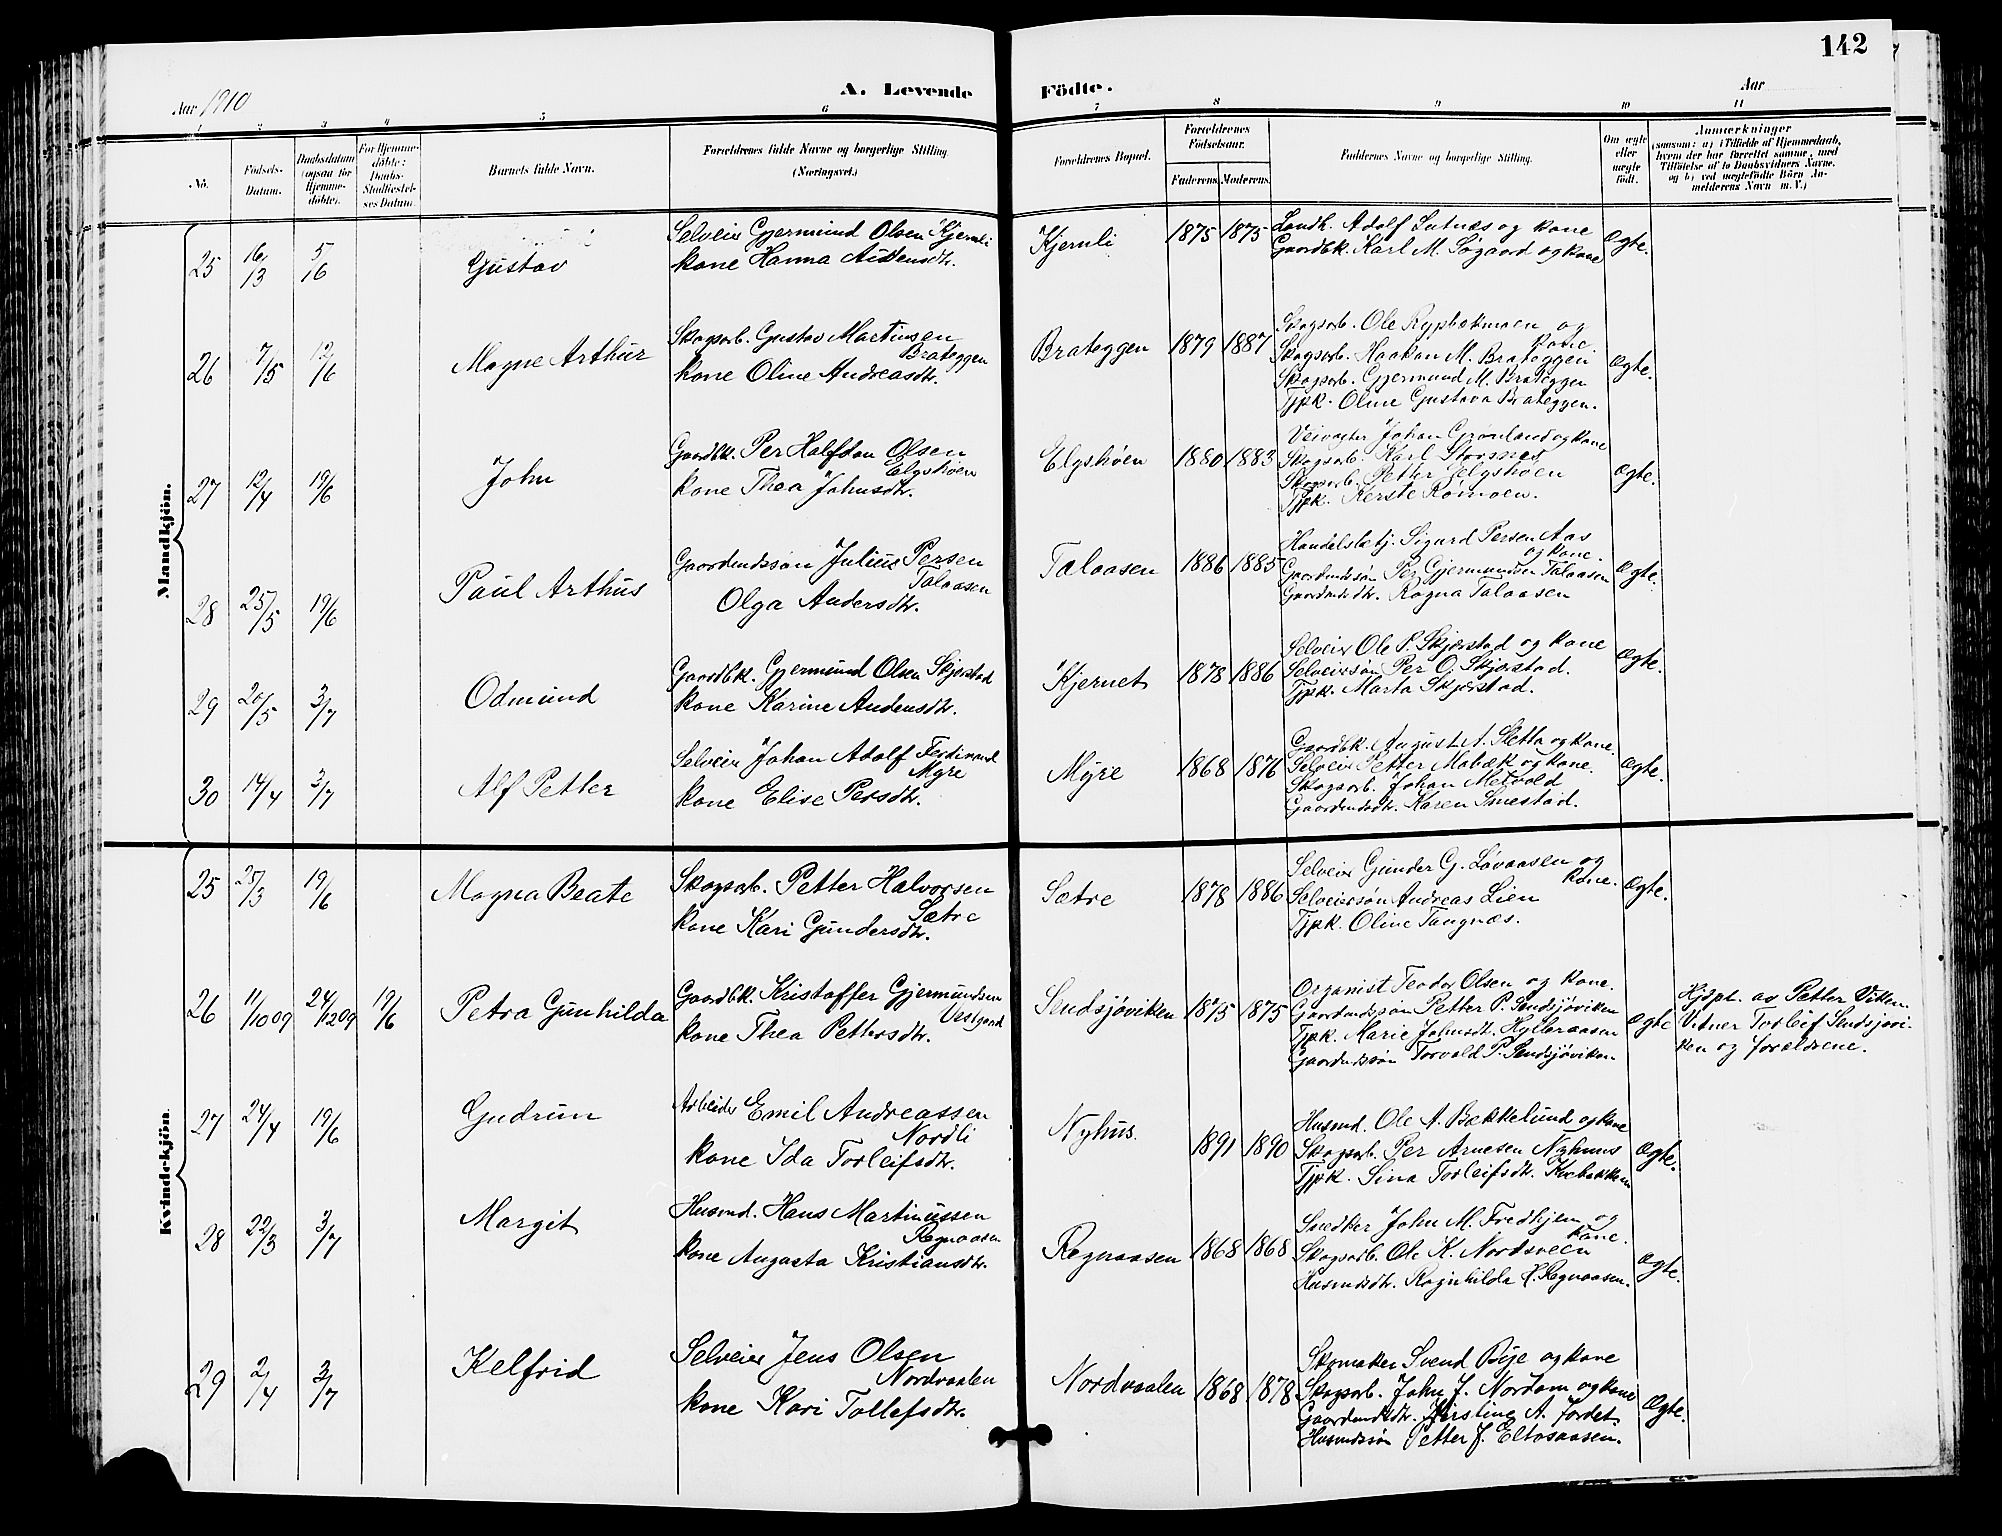 142
Aar 1910
A. Levende Födte.
Aar
1 2 3 4 5 6 7 8 9 10 11
No.
Födsels-Datum.
Daabsdatum (ogsaa for Hjemme-döbte).
For Hjemme-döbte: Daabs-Stadfæstel-ses Datum.
Barnets fulde Navn.
Forældrenes fulde Navne og borgerlige Stilling (Næringsvei.)
Forældrenes Bopæl.
Forældrenes Födselsaar.
Faderens. Moderens.
Faddernes Navne og borgerlige Stilling.
Om ægte eller uægte födt.
Anmærkninger
(saasom: a) i Tilfælde af Hjemmedaab, hvem der har forrettet samme, med Tilföielse af to Daabsvidners Navne. og b) ved uægtefödte Börn Anmelderens Navn m. V.)
Mandkjön.
25 16/13 5/16 Gustav
Selveier Gjermund Olsen Kjernli
kone Hanna Audensdtr.
Kjernli 1875 1875
Landh. Adolf Lutnæs og kone
Gaardbk. Karl M. Søgaard og kone
Ægte.
26 7/5 12/6 Magne Arthur
Skogsarb. Gustav Martinsen
Brateggen
kone Oline Andreasdtr.
Brateggen 1879 1887
Skogsarb. Ole Rypbekmoen og
kone
Skogsarb. Haakan M. Brateggen
Skogsarb. Gjermund M. Brateggen
Tjpk. Oline Gustava Brateggen.
Ægte.
27 12/4 19/6 John
Gaardbk. Per Halfdan Olsen
Elgshøen
kone Thea Johnsdtr.
Elgshöen 1880 1883
Veivogter Johan Grønland og kone
Skogsarb. Karl Stornæs
Skogsarb. Petter Elgshöen
Tjpk. Kerste Romoen.
Ægte.
28 25/5 19/6 Paul Arthur
Gaardmdssøn Julius Persen
Talaasen
Olga Andersdtr.
Talaasen 1886 1885
Handelsbetj. Sigurd Persen Aas
og kone.
Gaardmdssøn Per Gjermundsen Talaasen
Gaardmdsdtr. Ragna Talaasen
Ægte.
29 20/5 3/7 Odmund
Gaardbk. Gjermund Olsen Skjærstad
kone Karine Audensdtr.
Kjernet 1878 1886
Selveier Ole P. Skjærstad og kone
Selveiersøn Per O. Skjærstad.
Tjpk. Marta Skjærstad.
Ægte.
30 14/4 3/7 Alf Petter
Selveier Johan Adolf Ferdinand
Myre
kone Elise Persdtr.
Myre 1868 1876
Gaardbk. August A. Sletta og kone.
Selveier Petter Mobæk og kone.
Skogsarb. Johan Metvold
Gaardmdsdtr. Karen Smestad.
Ægte.
Kvindekjön.
25 25/3 19/6 Magna Beate
Skogsarb. Petter Halvorsen
Sætre
kone Kari Gundersdtr.
Sætre 1878 1886
Selveier Gunder G. Løvaasen og
kone.
Selveiersøn Andreas Lien
Tjpk. Oline Tangnæs.
Ægte.
26 11/10 09 24/12 09 19/6 Petra Gunhilda
Gaardbk. Kristoffer Gjermundsen
Vestgaard
kone Thea Pettersdtr.
Sendsjøvikken 1875 1875
Organist Teodor Olsen og kone.
Gaardmdssøn Petter P. Sendsjöviken
Tjpk. Marie Johnsdt. Hylleraasen
Gaardmdssøn Torvald P. Sendsjöviken
Ægte
Hjdpt. av Petter Viken.
Vitner Torleif Sendsjøvi-
ken og forældrene.
27 24/4 19/6 Gudrun
Arbeider Emil Andreassen
Nordli
kone Ida Torleifsdtr.
Nyhus. 1891 1890
Husmd. Ole A. Bækkelund og kone
Skogsarb. Per Arnesen Nyhuus
Tjpk. Sina Torleifsdtr.
Ægte.
28 22/3 3/7 Margit
Husmd. Hans Martinussen
Regnaasen
kone Augusta Kristiansdtr.
Regnaasen 1868 1868
Snedker John M. Fredhjem og
kone.
Skogsarb. Ole K. Nordsveen
Husmdsdtr. Ragnhilda H. Regnaasen.
Ægte.
29 2/4 3/7 Kelfrid
Selveier Jens Olsen
Nordvaalen
kone Kari Tollefsdtr.
Nordvaalen 1868 1878
Skomaker Svend Bye og kone
Skogsarb. John J. Nordom og kone
Gaardmdsdtr. Kirstine A. Jordet.
Husmdssøn Petter J. Eltaaasen.
Ægte.